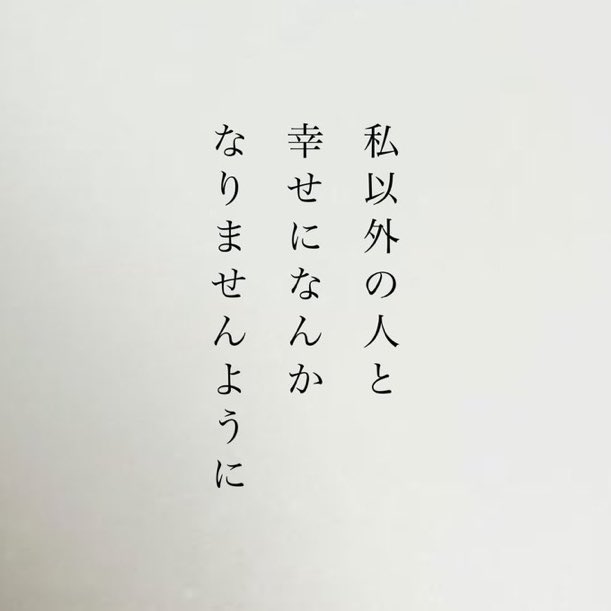 私以外の人と
幸せになんか
なりませんように